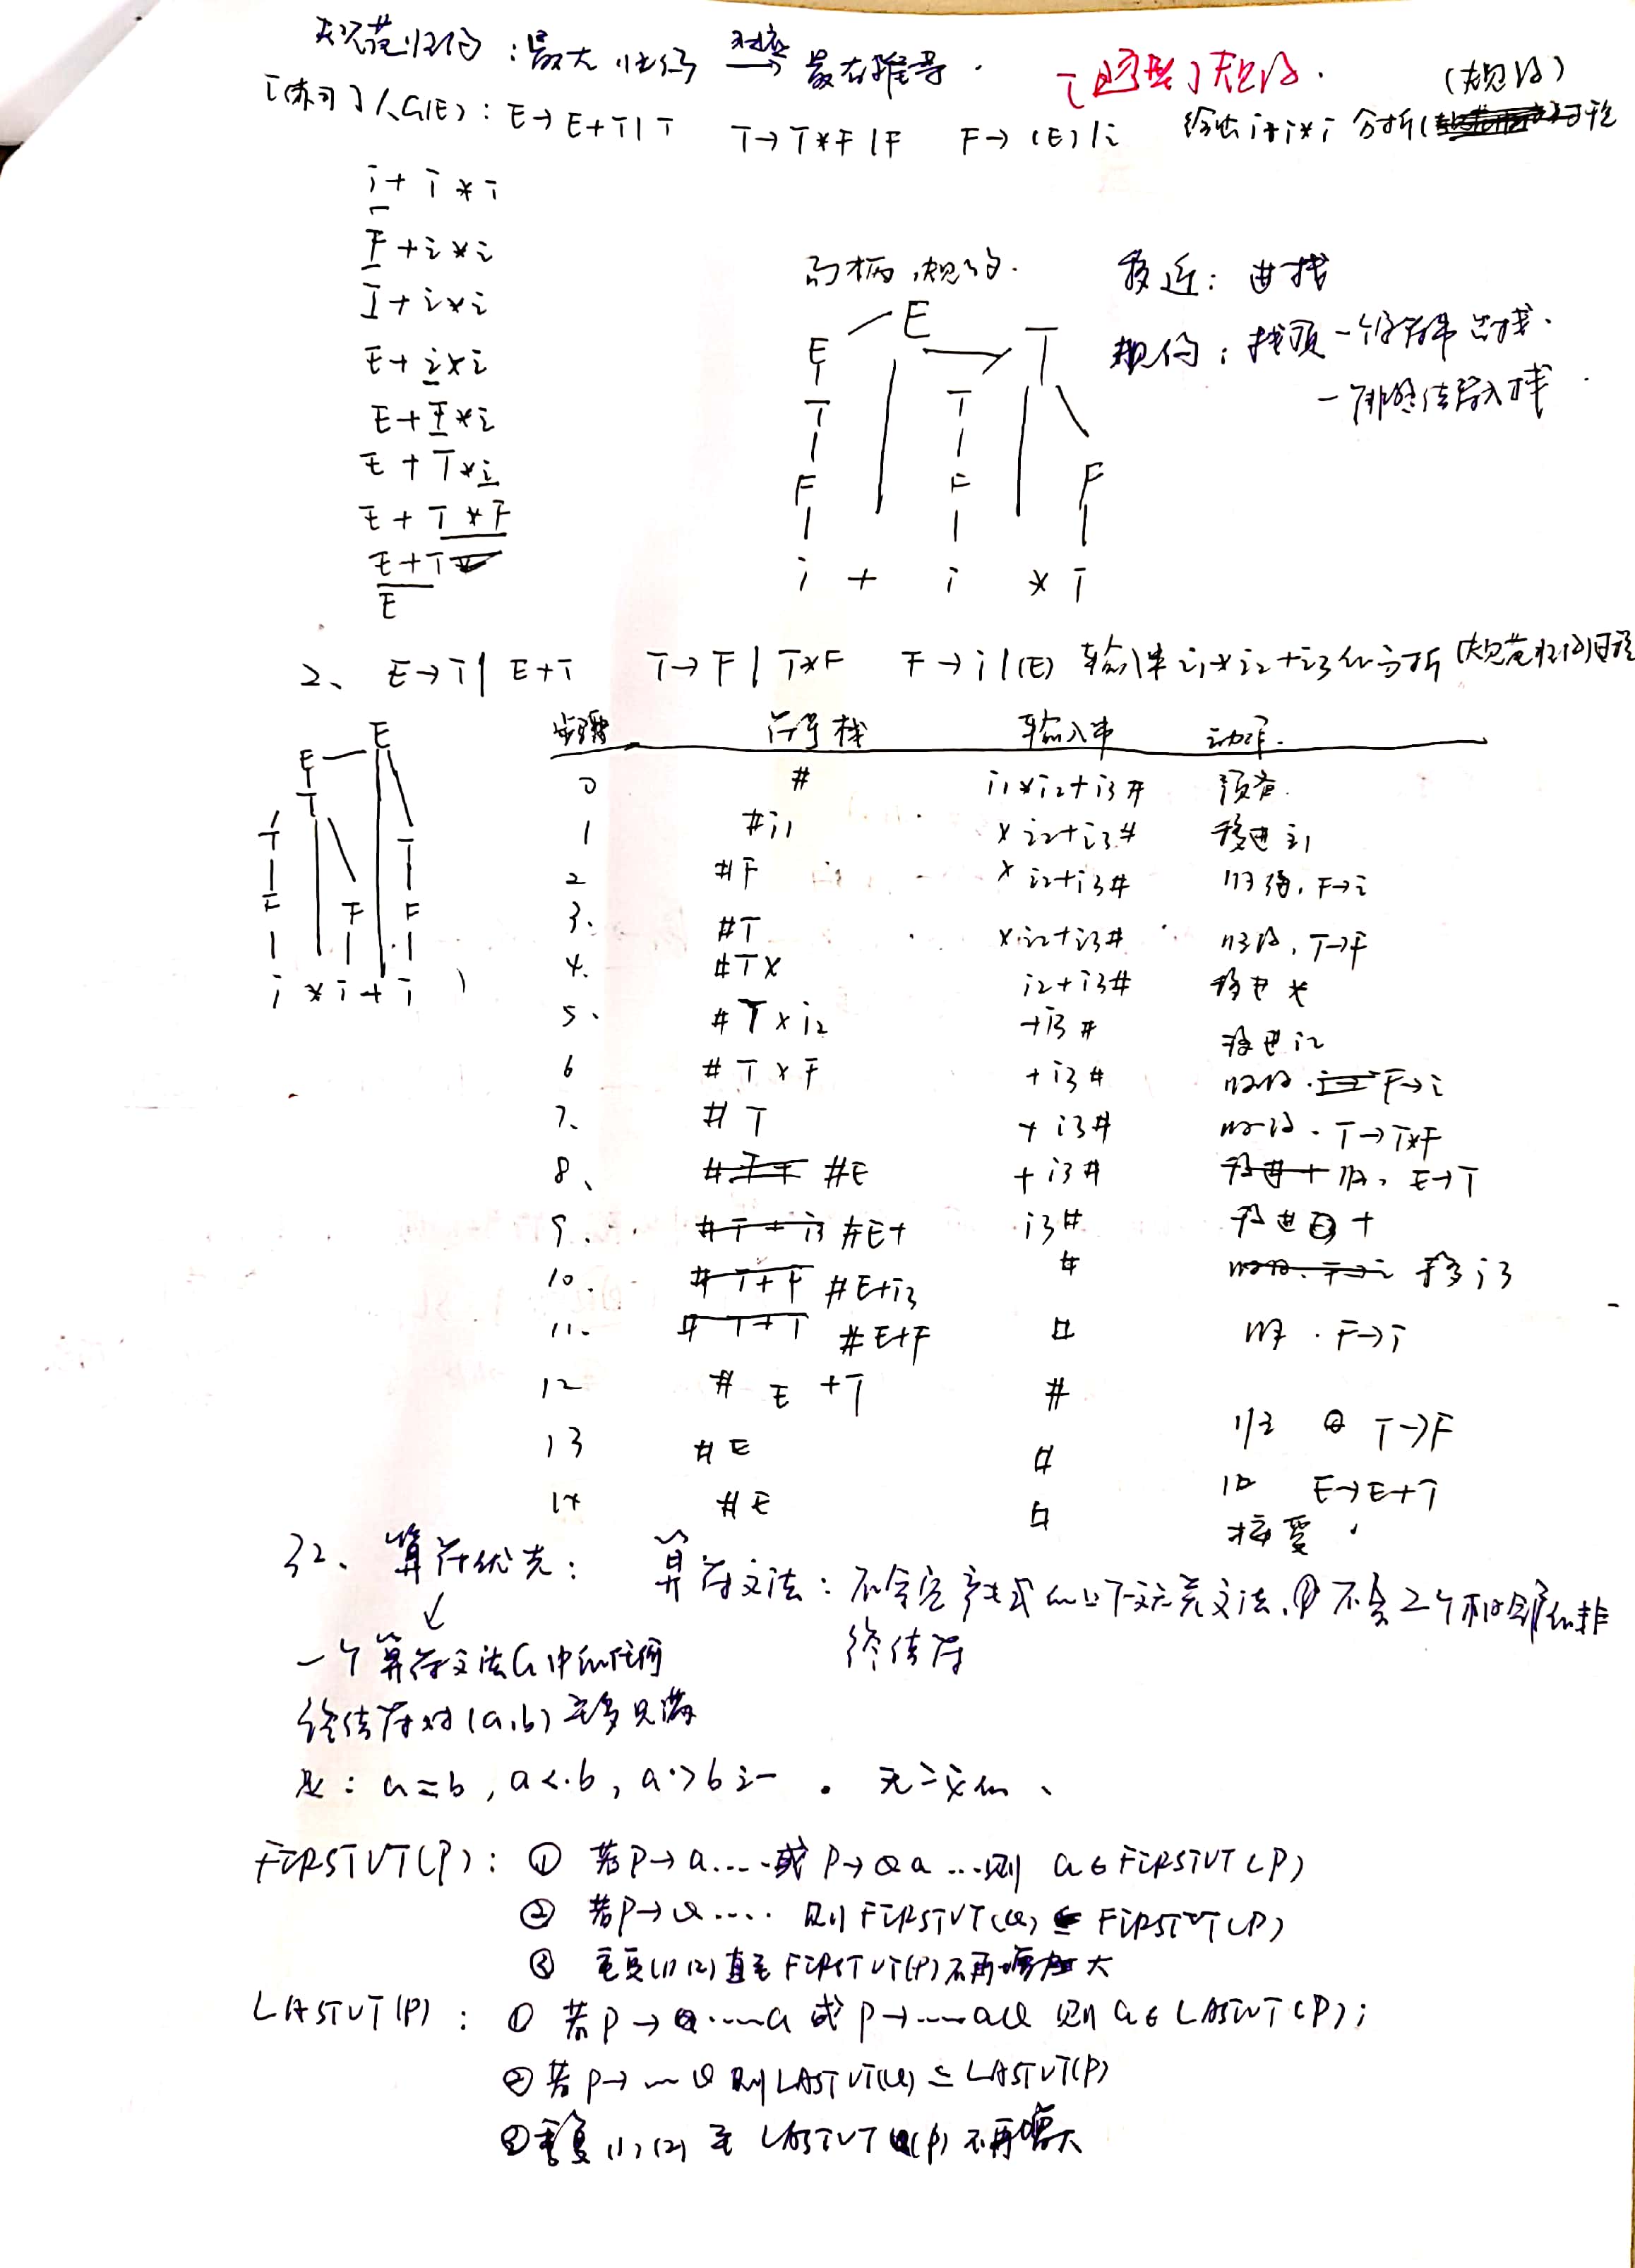 规范归约：最左归约 对应→ 最右推导．
[练习] 1、G(E)：E→E+T|T T→T*F|F F→(E)|i 给出i+i*i 分析( 过程 (规约)
i+i*i
F+i*i
T+i*i
E+i*i
E+F*i
E+T*i
E+T*F
E+T
E
句柄,规约．
移近：进栈
规约：栈顶一个符号串出栈．
一个非终结符入栈．
E
E T
T T
F F F
i + i * i
2、E→T|E+T T→F|T*F F→i|(E) 输入串i1*i2+i3的分析(规范归约)过程
E
E
T
T T
F F F
i * i + i
步骤 符号栈 输入串 动作．
0 # i1*i2+i3# 预备．
1 #i1 *i2+i3# 移进i1
2 #F *i2+i3# 归约，F→i
3. #T *i2+i3# 归约，T→F
4. #T* i2+i3# 移进*
5. #T*i2 +i3# 移进i2
6 #T*F +i3# 归约．F→i
7、 #T +i3# 归约．T→T*F
8、 #E +i3# 归，E→T
9. #E+ i3# 移进+
10. #E+i3 # 移i3
11. #E+F # 归．F→i
12 # E +T # 归 T→F
13 #E # 归 E→E+T
14 #E # 接受．
32、算符优先： 算符文法：不含空产生式的上下文无关文法，①不含2个相邻的非
终结符
一个算符文法G中的任何
终结符对(a,b)至多只满
足：a=b，a<·b，a·>b之一．无二义的、
FIRSTVT(P)：① 若P→a……或P→Qa…则 a∈FIRSTVT(P)
② 若P→Q…… 则FIRSTVT(Q)⊆FIRSTVT(P)
③ 重复(1)(2)直至FIRSTVT(P)不再增大
LASTVT(P)：① 若P→……a或P→……aQ 则a∈LASTVT(P)；
② 若P→…Q 则LASTVT(Q)⊆LASTVT(P)
③重复(1),(2)至 LASTVT(P)不再增大